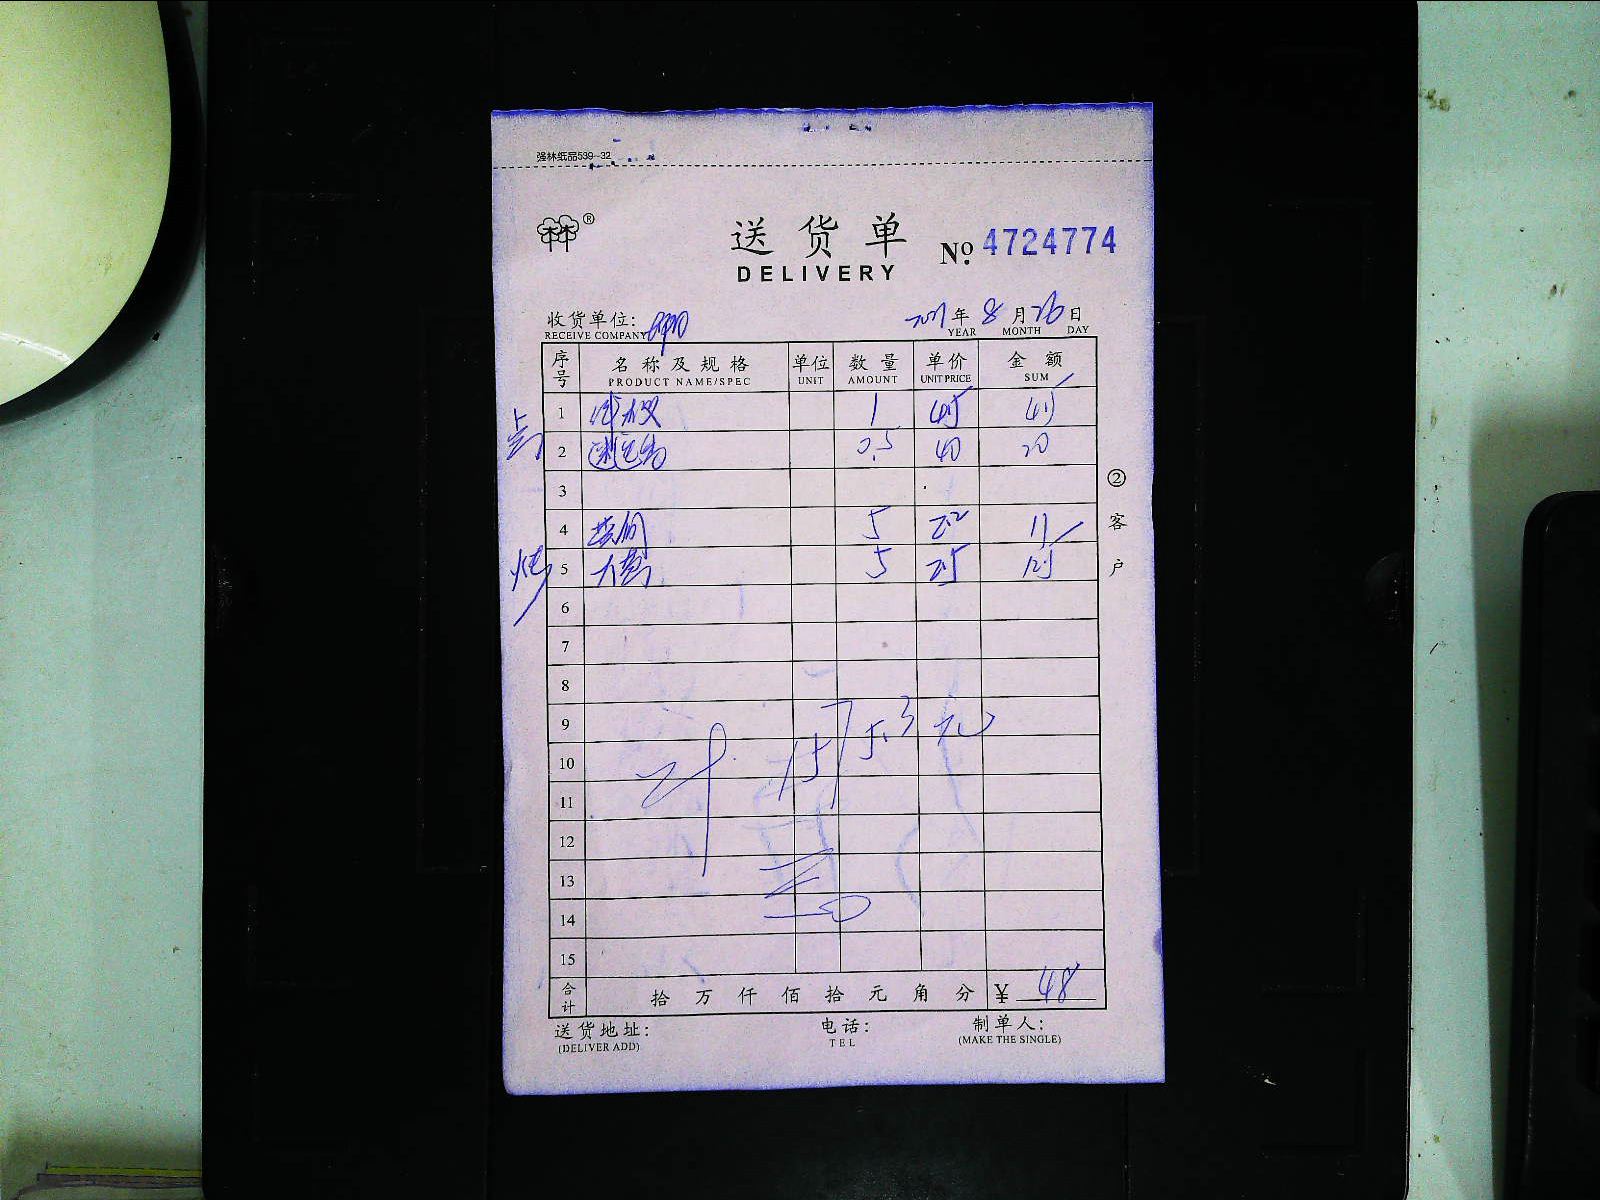 强林纸品539-32
®
送货单
DELIVERY
No. 4724774
收货单位:
RECEIVE COMPANY
年 8 月 26 日
YEAR MONTH DAY
序号 名称及规格 单位 数量 单价 金额
PRODUCT NAME/SPEC UNIT AMOUNT UNIT PRICE SUM
1 1 45 45
2 0.5 40 20
3
4 5 2.2 11
5 大葱 5
6
7
8
9
10
11
12
13
14
15
合计 拾 万 仟 佰 拾 元 角 分 ¥ 48
② 客户
送货地址: 电话: 制单人:
(DELIVER ADD) TEL (MAKE THE SINGLE)